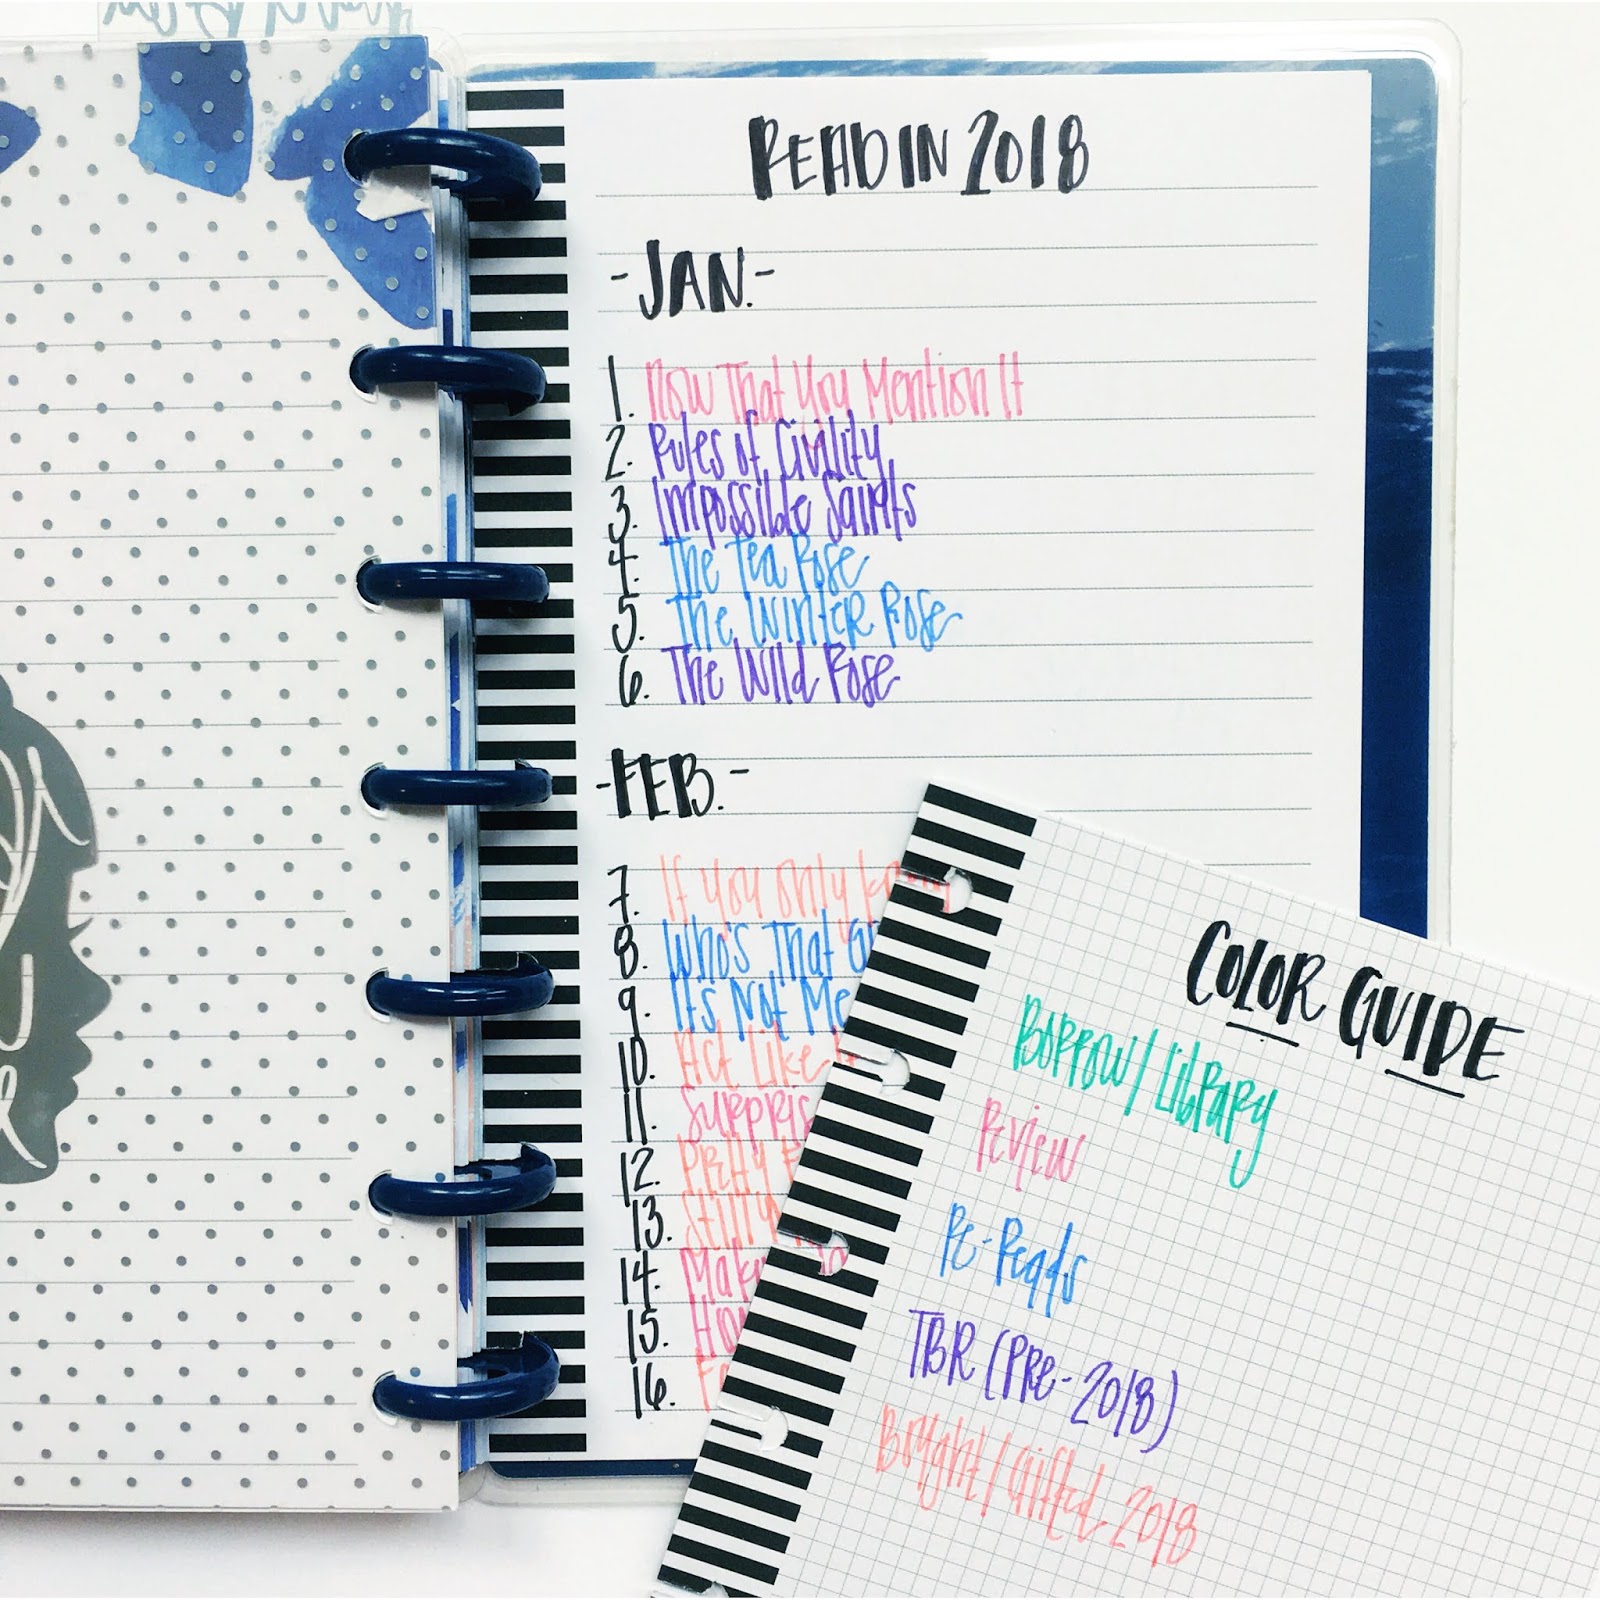 READ IN 2018
- JAN. -
1. Now That You Mention It
2. Rules of Civility
3. Impossible Saints
4. The Tea Rose
5. The Winter Rose
6. The Wild Rose
- FEB. -
7. If You Only
8. Who's That
9. It's Not Me
10. Act Like
11.
12. Pretty
13. Still
14.
15.
16.
COLOR GUIDE
Borrow / Library
Review
Re-Reads
TBR (Pre-2018)
Bought / Gifted 2018